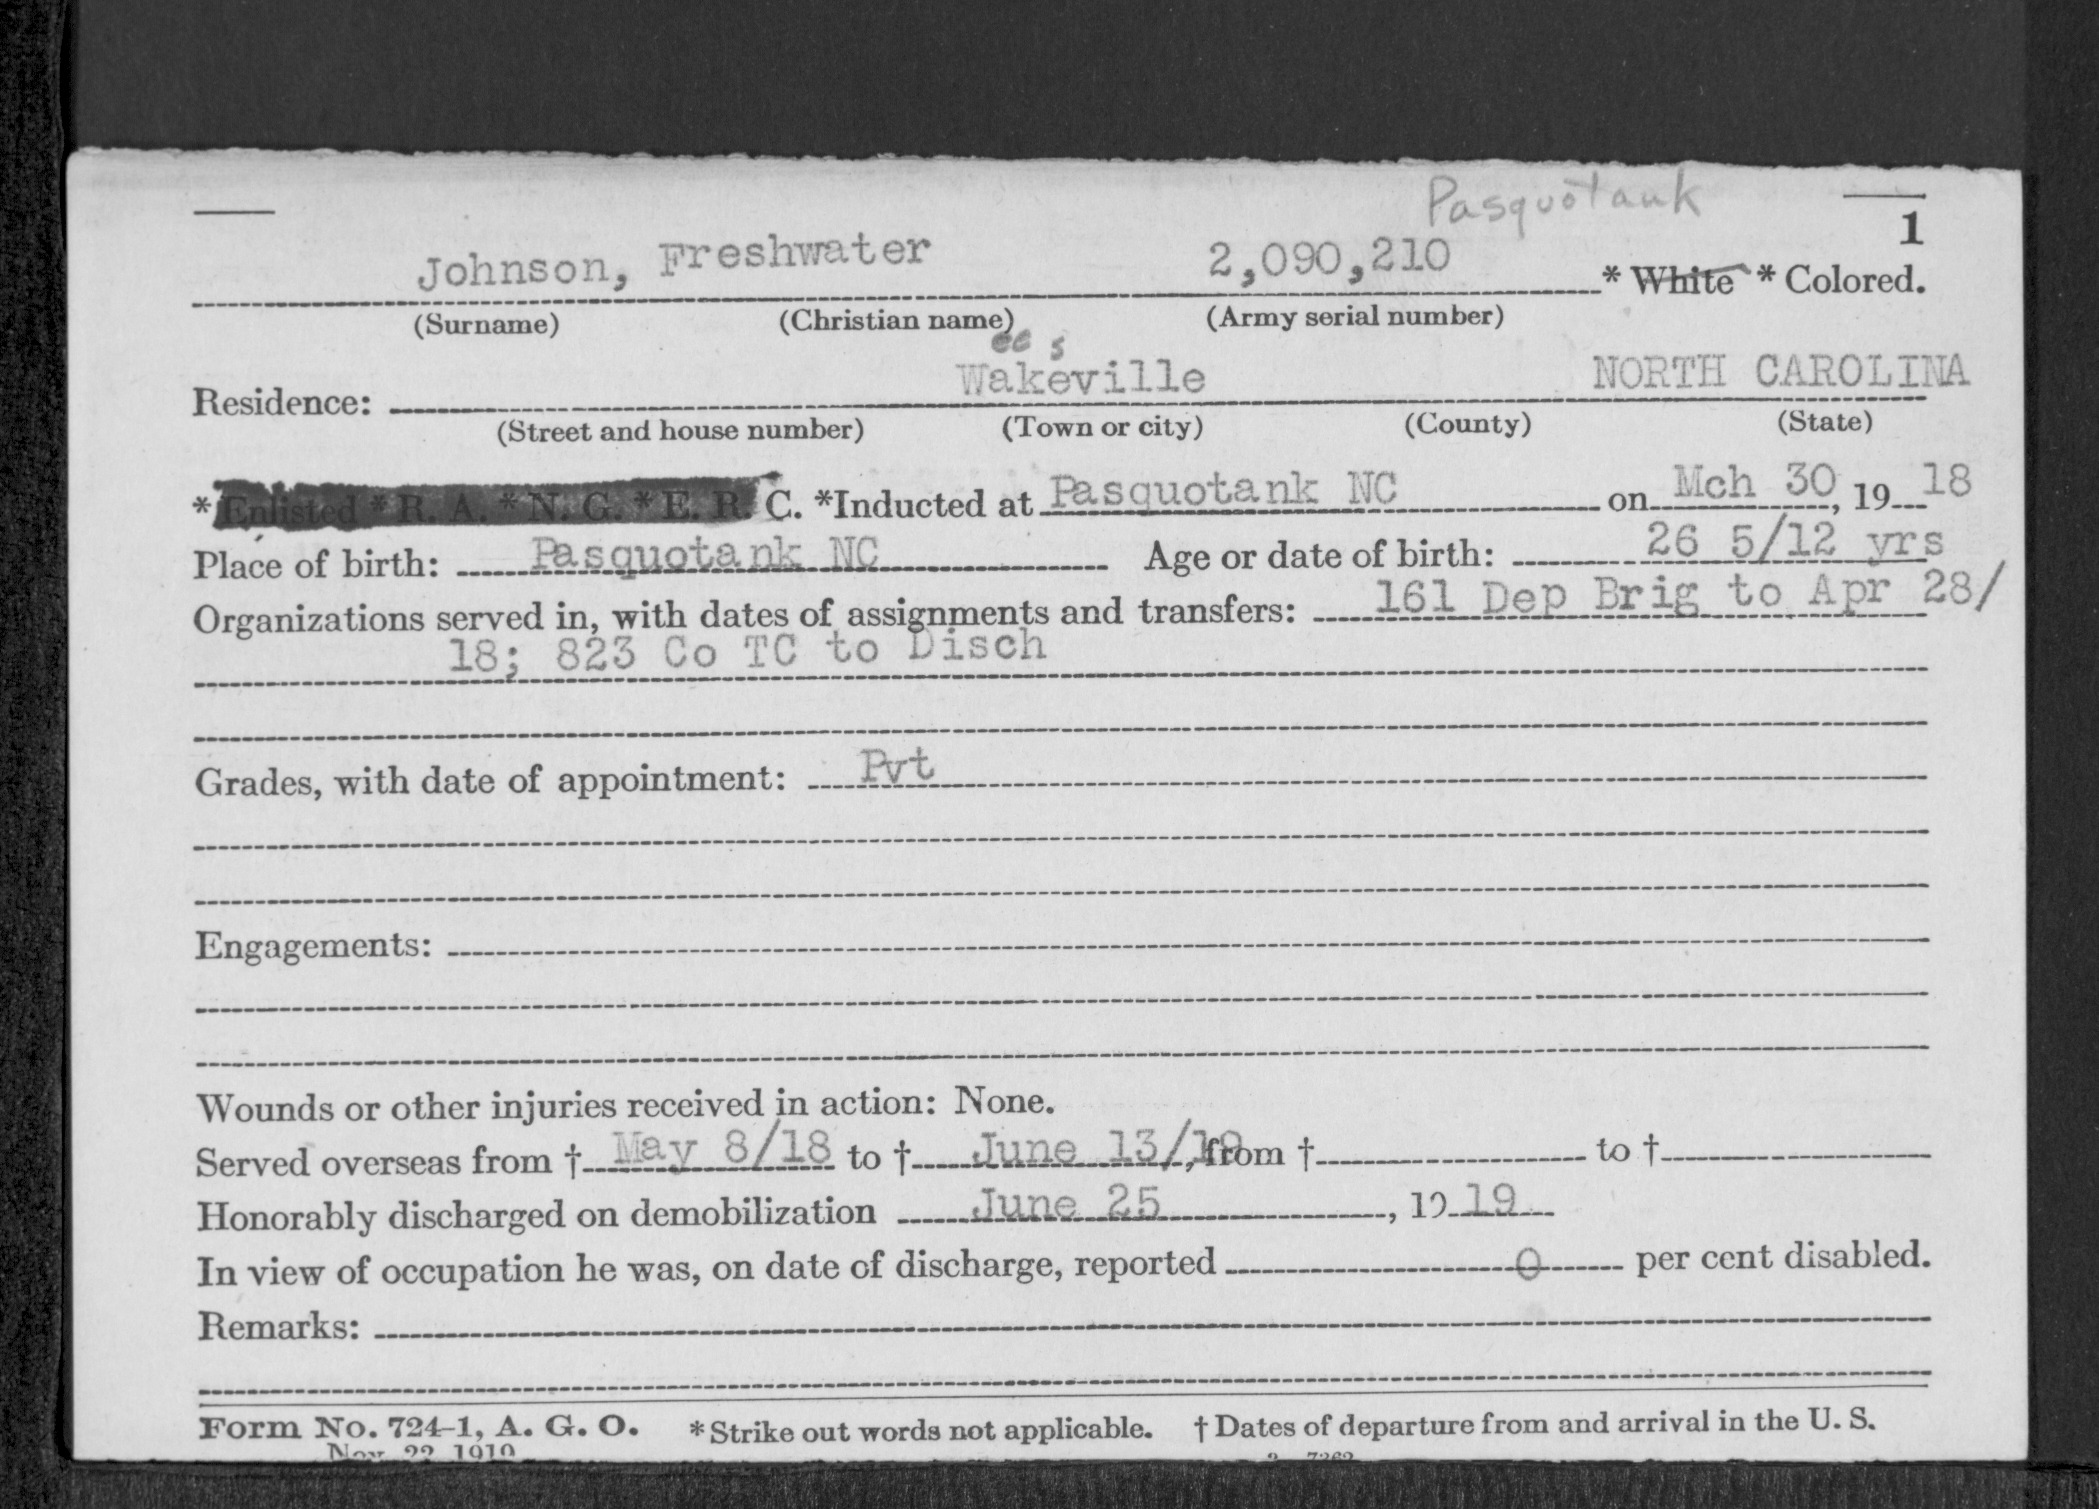 Pasquotank
1
Johnson, Freshwater 2,090,210 * White * Colored.
(Surname) (Christian name) (Army serial number)
ee s
Residence: Wakeville NORTH CAROLINA
(Street and house number) (Town or city) (County) (State)
*Enlisted * R. A. * N. G. * E. R. C. *Inducted at Pasquotank NC on Mch 30, 19 18
Place of birth: Pasquotank NC Age or date of birth: 26 5/12 yrs
Organizations served in, with dates of assignments and transfers: 161 Dep Brig to Apr 28/
18; 823 Co TC to Disch
Grades, with date of appointment: Pvt
Engagements:
Wounds or other injuries received in action: None.
Served overseas from † May 8/18 to † June 13/19, from † to †
Honorably discharged on demobilization June 25, 19 19
In view of occupation he was, on date of discharge, reported 0 per cent disabled.
Remarks:
Form No. 724-1, A. G. O. * Strike out words not applicable. † Dates of departure from and arrival in the U. S.
Nov. 22, 1919